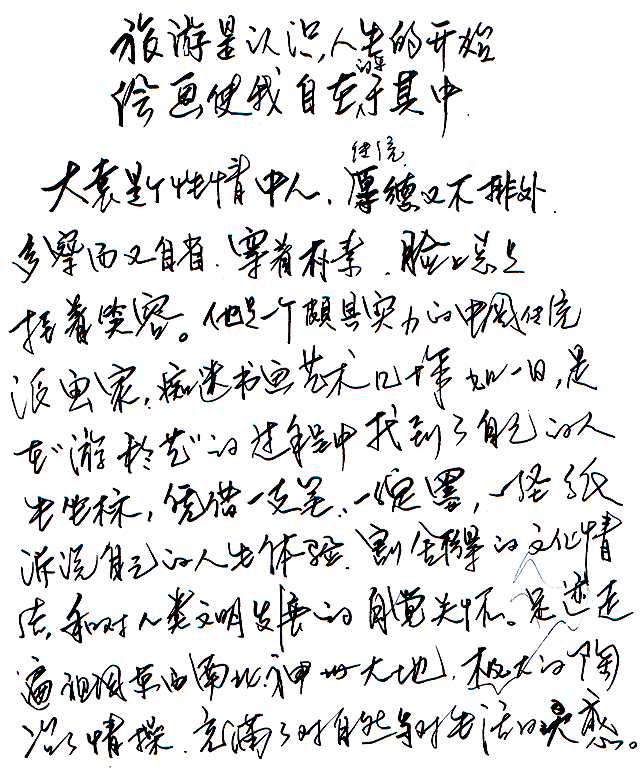 旅游是认识人生的开始
绘画使我自在的享于其中.
大袁是个性情中人、传统厚德又不排外
多察而又自省.穿着朴素.脸上总是
挂着笑容。他是一个颇具实力的中国传统
派画家,痴迷书画艺术几十年如一日,是
在"游于艺"的过程中找到了自己的人
生坐标,凭借一支笔、一锭墨,一张纸
诉说自己的人生体验.割舍不得的文化情
结,和对人类文明发展的自觉关怀。足迹走
遍祖国东西南北.神州大地.极大的陶
冶了情操.充满了对自然与对生活的灵感。